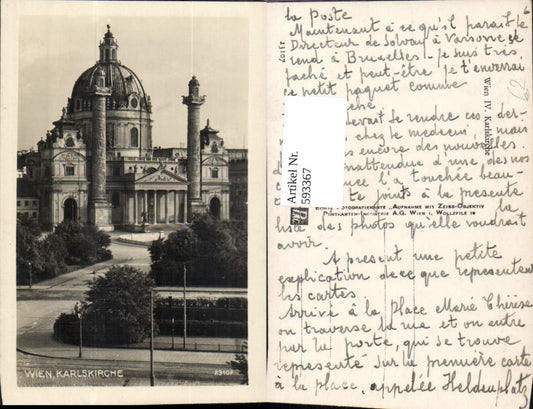 WIEN, KARLSKIRCHE
23107
la Poste
Maintenant à ce qu'il paraît le
Directeur de Solvay à Varsovie se
rend à Bruxelles. Je suis très
faché et peut-être je t'enverrai
ce petit paquet comme
devait se rendre ces der-
chez le medecin, mais
pas encore des nouvelles.
inattendue d'une de nos
l'a touchée beau-
te joints à la presente
la
liste des photos qu'elle voudrait
avoir.
A present une petite
explication de ce que representent
les cartes.
Arrivé à la Place Marie Thérèse
on traverse la rue et on entre
par la porte, qui se trouve
representé sur la première carte
à la place, appelée Heldenplatz
23107
Wien IV., Karlskirche
Artikel Nr.
593367
ECHTE FOTOGRAFIEKARTE, AUFNAHME MIT ZEISS-OBJEKTIV
POSTKARTEN-INDUSTRIE A.G. WIEN I. WOLLZEILE 19